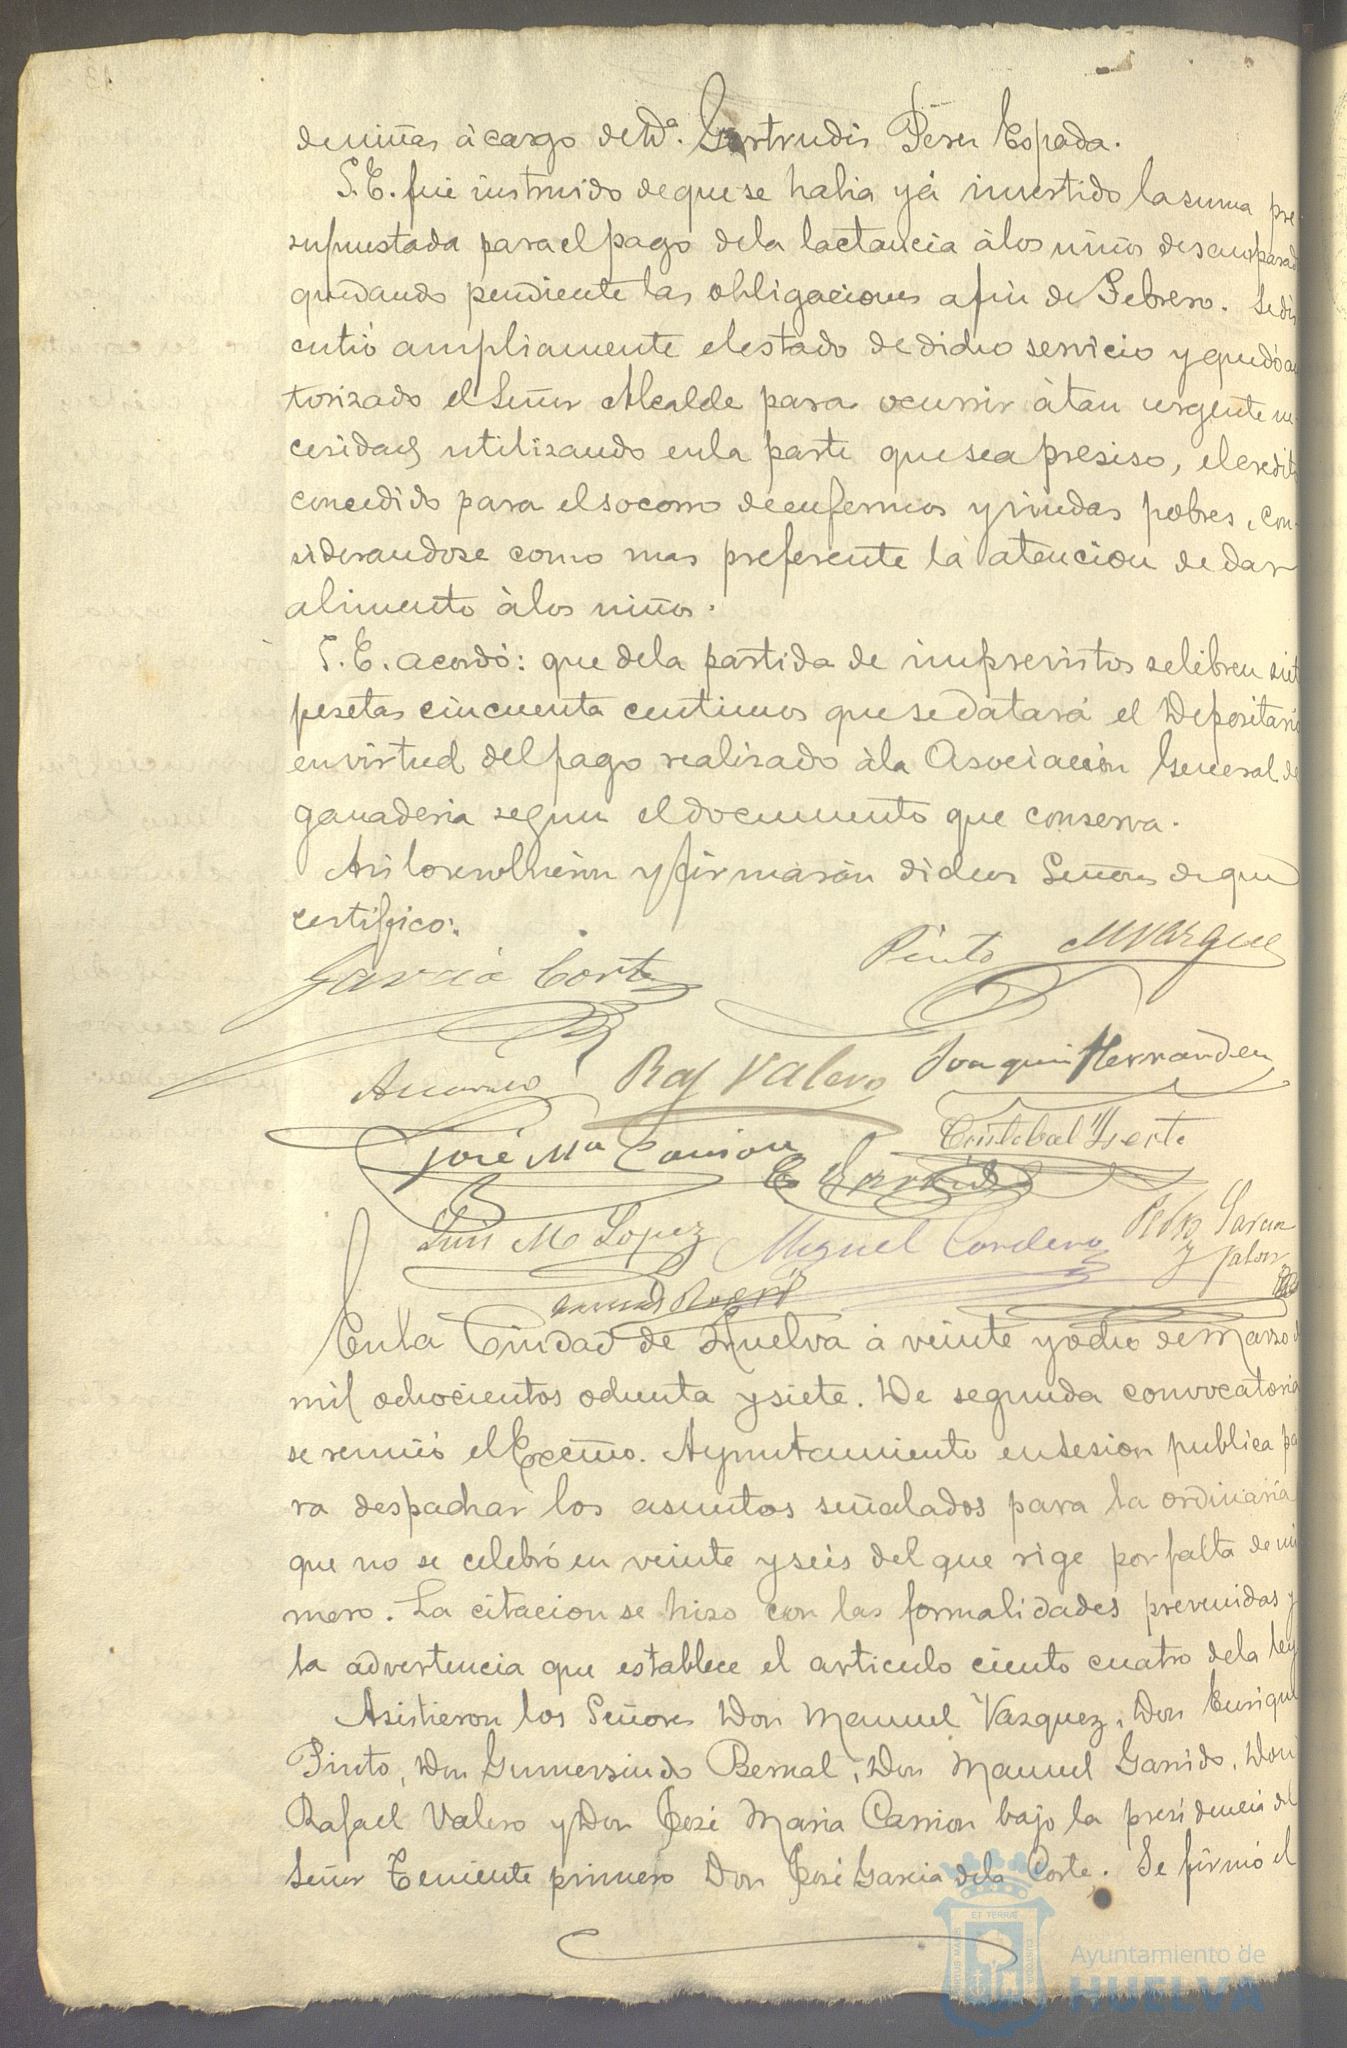 de niñas à cargo de Dª. Gertrudis Perez Espada.
S.E. fué instruido de que se habia yá invertido la suma pre
supuestada para el pago de la lactancia à los niños desamparad
quedando pendiente las obligaciones a fin de Febrero. Se dis
cutió ampliamente el estado de dicho servicio y quedó au
torizado el Señor Alcalde para ocurrir à tan urgente ne
cesidad utilizando en la parte que sea presiso, el credito
concedido para el socorro de enfermos y viudas pobres, con
siderandose como mas preferente la atencion de dar
alimento à los niños.
S.E. acordó: que de la partida de imprevistos se libren siete
pesetas cincuenta centimos que se datará el Depositario
en virtud del pago realizado à la Asociación General de
ganaderia segun el documento que conserva.
Asi lo resolvieron y firmarán dichos Señores de que
certifico:.
Garcia Corte Pinto M Vazquez
Raf Valero Joaquin Hernandez
José Mª Carrion Cristobal
Luis Mº Lopez Miguel Cordero Pedro Garcia
y Jalon
En la Ciudad de Huelva á veinte y ocho de Marzo d
mil ochocientos ochenta y siete. De segunda convocatoria
se reunió el Excmo. Ayuntamiento en sesion publica pa
ra despachar los asuntos señalados para la ordinaria
que no se celebró en veinte y seis del que rige por falta de nú
mero. La citacion se hizo con las formalidades prevenidas y
la advertencia que establece el articulo ciento cuatro de la ley
Asistieron los Señores Don Manuel Vazquez, Don Enrique
Pinto, Don Gumersindo Bernal, Don Manuel Garrido, Don
Rafael Valero y Don José Maria Carrion bajo la presidencia del
Señor Teniente primero Don José Garcia de la Corte. Se firmó el
Ayuntamiento de
HUELVA